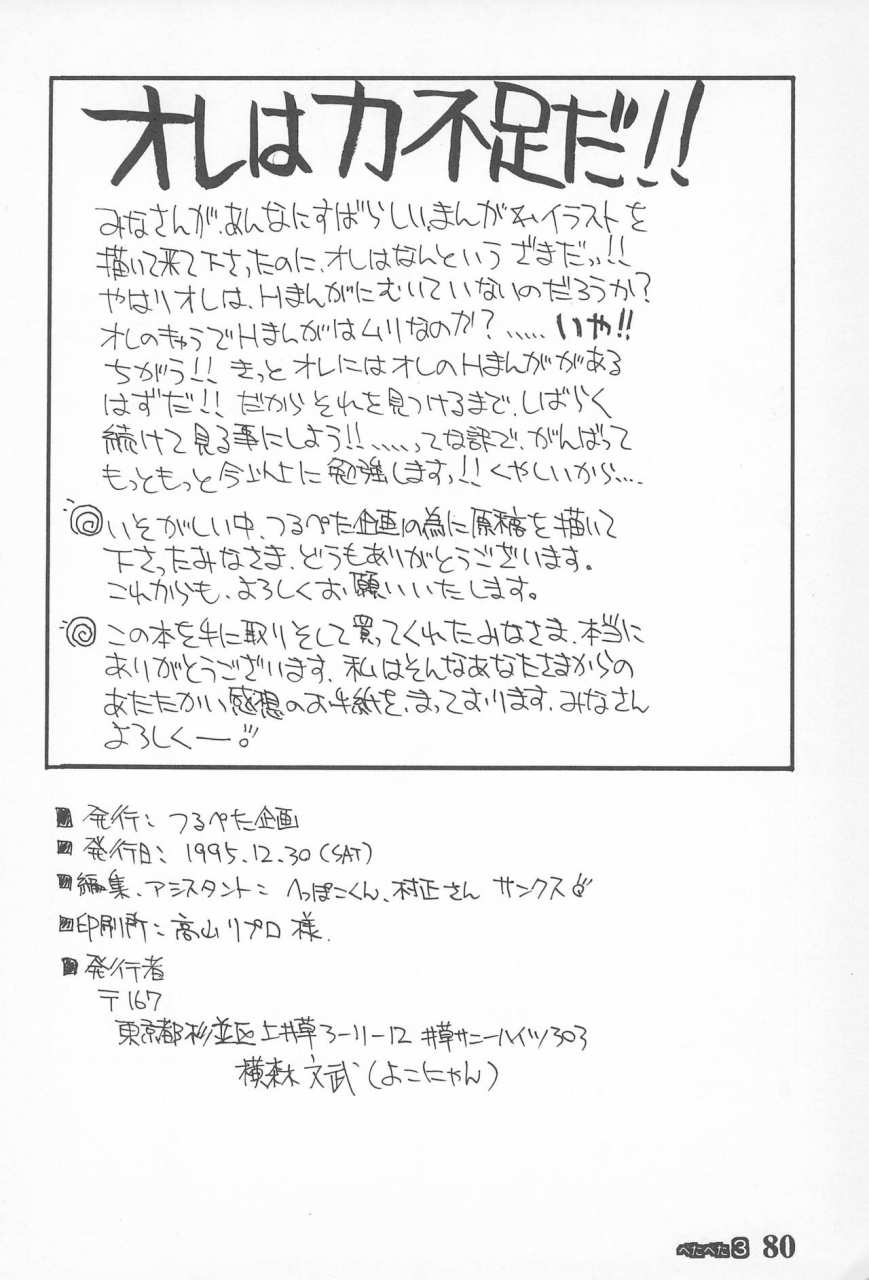 オレは力不足だ!!
みなさんが、あんなにすばらしいまんがやイラストを
描いて来て下さったのに、オレはなんという ざまだっ!!
やはりオレは、Hまんがにむいていないのだろうか?
オレのきゃらでHまんがはムリなのか? ..... いや!!
ちがう!! きっと オレにはオレのHまんががある
はずだ!! だから それを見つけるまで、しばらく
続けて見る事にしよう!! .....って訳で、がんばって
もっともっと今以上に勉強しますっ!! くやしいから....
いそがしい中、つるぺた企画の為に原稿を描いて
下さったみなさま、どうもありがとうございます。
これからも、よろしくお願いいたします。
この本を手に取りそして買ってくれたみなさま、本当に
ありがとうございます、私はそんなあなたさまからの
あたたかい感想のお手紙を、まっております、みなさん
よろしくー!!
発行: つるぺた企画
発行日: 1995.12.30(SAT)
編集、アシスタント: へっぽこくん、村正さん サンクス!!
印刷所: 高山リプロ様.
発行者
〒167
東京都杉並区上井草3-11-12 井草サニーハイツ303
横森文武(よこにゃん)
ぺたぺた3 80